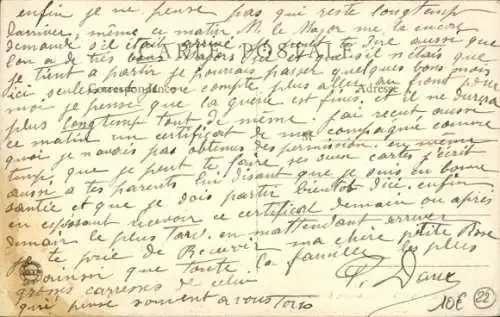 enfin je ne pense pas qui reste longtemps
d'arriver, même ce matin M. le Major me la encore
demandé s'il était arrivé
CARTE POSTALE
Correspondance
Adresse
je tient a partir je pourrais passer quelques bons mois
ici seulement
compte plus aller au front pour
moi je pense que la guerre est finis et il ne durera
plus longtemp tout de même. j'ai reçut aussi
ce matin un certificat de ma compagnie comme
quoi je n'avais pas obtenus des permission. en même
temps que je peut te faire ses deux cartes j'écrit
aussi a tes parents lui disant que je suis en bonne
santie et que je dois partir bientôt d'ici. enfin
en espérant recevoir ce certificat demain ou après
demain le plus tard. en mattendant arriver
te prie de Recevoir ma chère petite Rose
ainsi que toute la famille les plus
grosses caresses de celui
qui pense souvent a vous tous
P. Daux
10€
22